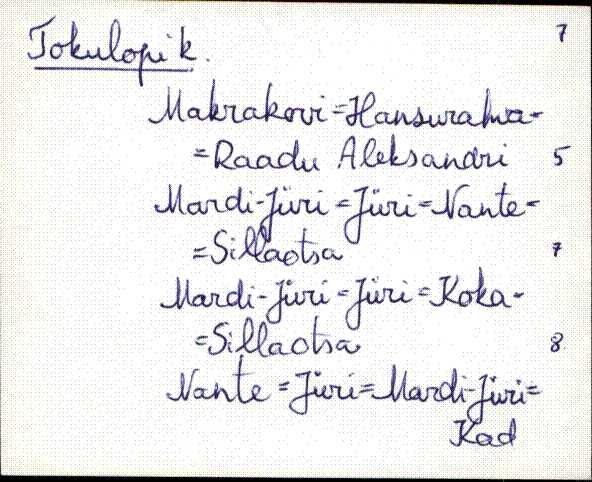 7
Tokulopik.
Makrakovi=Hansurahva-
=Raadu Aleksandri 5
Mardi-Jüri=Jüri=Nante-
=Sillaotsa 7
Mardi-Jüri=Jüri=Koka-
=Sillaotsa 8
Nante=Jüri=Mardi-Jüri=
Kad